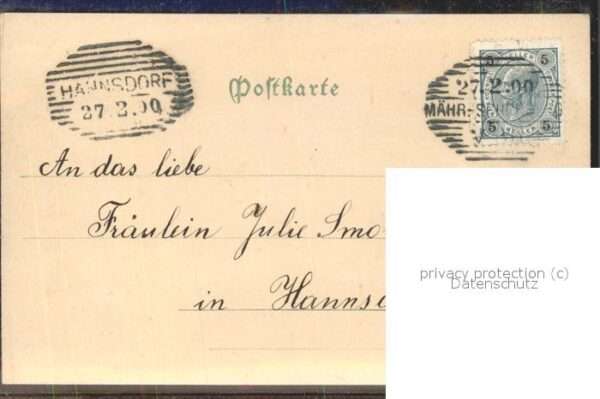 HANNSDORF
27.2.00
Postkarte
5 5
27.2.00
MÄHR-
5 HELLER 5
An das liebe
Fräulein Julie Smo
in Hanns
privacy protection (c)
Datenschutz